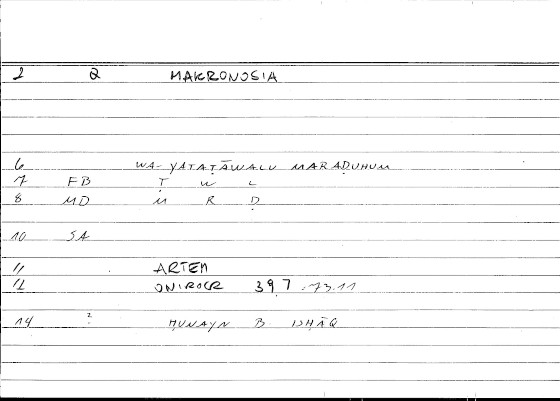 2 Q MAKRONOSIA
6 WA-YATAṬĀWALU MARAḌUHUM
7 FB Ṭ W L
8 MD M R Ḍ
10 SA
11 ARTEM
12 ONIROCR 397.73.11
14 ? ḤUNAYN B ISḤĀQ